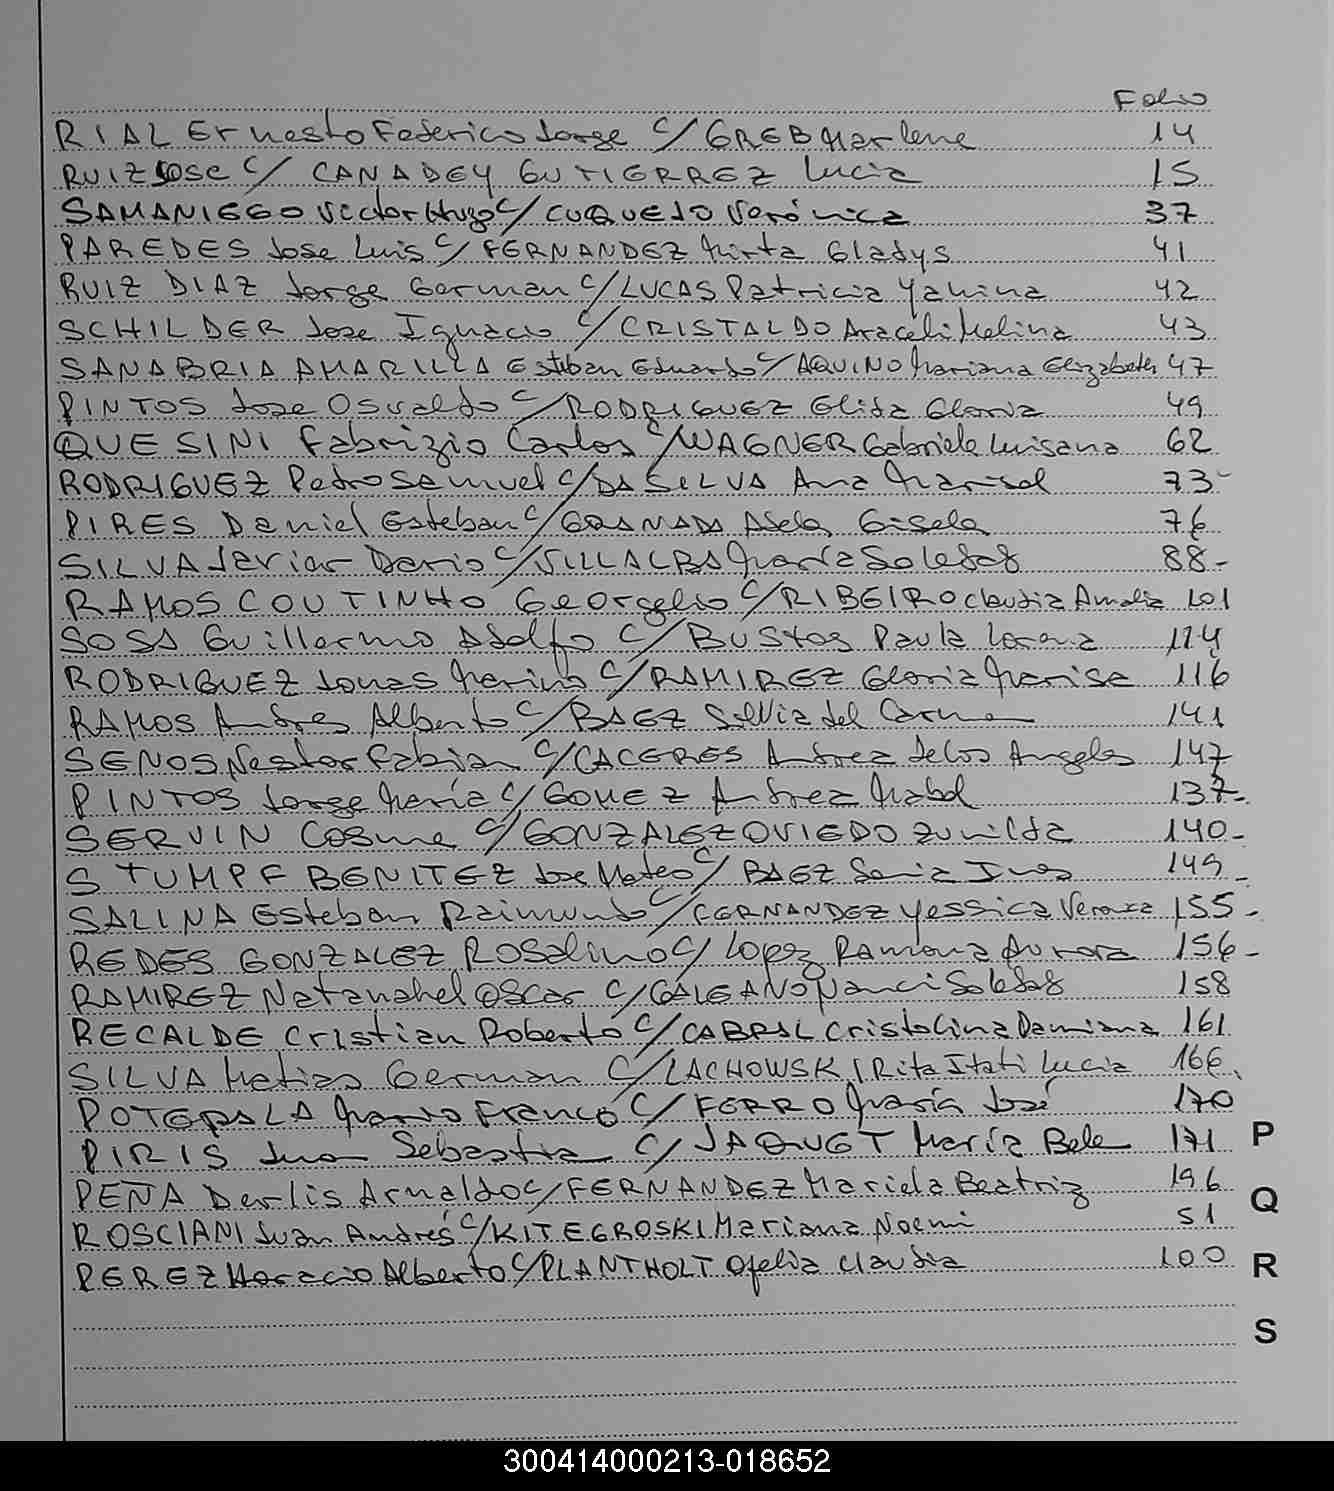 Folio
RIAL Ernesto Federico Jorge c/ GREB Marlene 14
RUIZ Jose c/ CANADEY GUTIERREZ Lucia 15
SAMANIEGO Victor Hugo c/ CUQUEJO Verónica 37
PAREDES Jose Luis c/ FERNANDEZ Mirta Gladys 41
RUIZ DIAZ Jorge German c/ LUCAS Patricia Yanina 42
SCHILDER Jose Ignacio c/ CRISTALDO Araceli Melina 43
SANABRIA AMARILLA Esteban Eduardo c/ AQUINO Mariana Elizabeth 47
PINTOS Jose Osvaldo c/ RODRIGUEZ Elida Gloria 49
QUESINI Fabrizio Carlos c/ WAGNER Gabriela Luisana 62
RODRIGUEZ Pedro Samuel c/ DA SILVA Ana Marisol 73
PIRES Daniel Esteban c/ GRANADA Adela Gisela 76
SILVA Javier Dario c/ VILLALBA María Soledad 88-
RAMOS COUTINHO Georgelio c/ RIBEIRO Claudia Amalia 101
SOSA Guillermo Adolfo c/ BUSTOS Paula Lorena 114
RODRIGUEZ Jonas Marino c/ RAMIREZ Gloria Marisa 116
RAMOS Andres Alberto c/ BAEZ Silvia del Carmen 141
SENOS Nestor Fabian c/ CACERES Andrea de los Angeles 147
PINTOS Jorge María c/ GOMEZ Andrea Mabel 137-
SERVIN Cosme c/ GONZALEZ OVIEDO Zunilda 140-
STUMPF BENITEZ Jose Mateo c/ BAEZ Sonia Ines 149-
SALINA Esteban Raimundo c/ FERNANDEZ Yessica Veronica 155-
REDES GONZALEZ Rosalino c/ Lopez Ramona Aurora 156-
RAMIREZ Natanahel Oscar c/ GALEANO Nanci Soledad 158
RECALDE Cristian Roberto c/ CABRAL Cristolina Damiana 161
SILVA Matias German c/ LACHOWSKI Rita Itati Lucia 166
POTEPALA Mario Franco c/ FERRO María José 170
PIRIS Juan Sebastian c/ JAQUET María Belen 171
P
PEÑA Derlis Arnaldo c/ FERNANDEZ Mariela Beatriz 196
Q
ROSCIANI Juan Andrés c/ KITEGROSKI Mariana Noemi 51
PEREZ Horacio Alberto c/ PLANTHOLT Ofelia Claudia 100
R
S
300414000213-018652